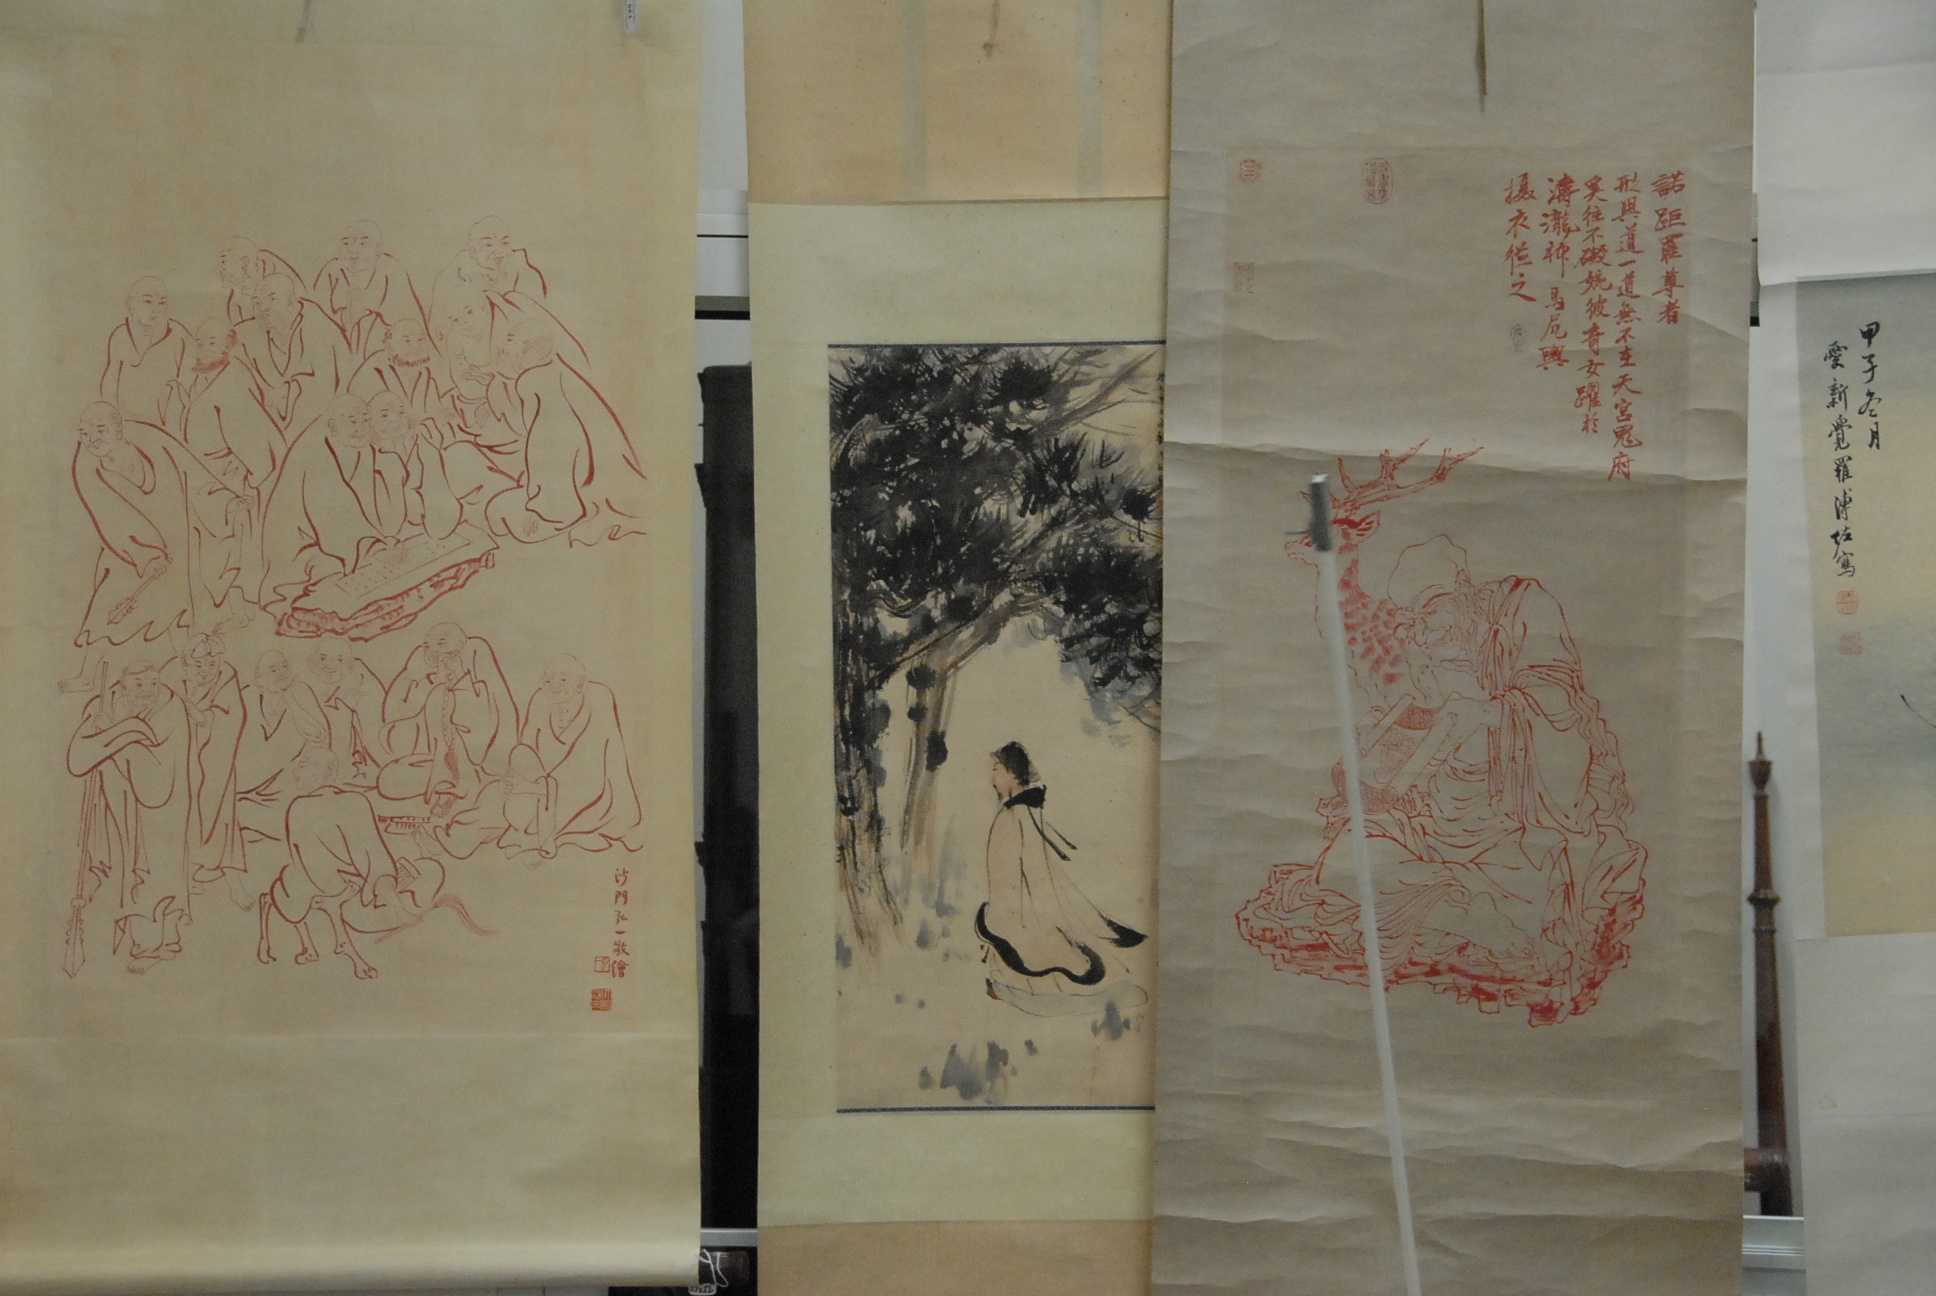 沙門弘一敬繪
諾距羅尊者
形與道一道無不在天宮鬼府
奚往不礙婉彼奇女躍於
濤瀧神馬凥輿
攝衣從之
甲子冬月
愛新覺羅溥佐寫